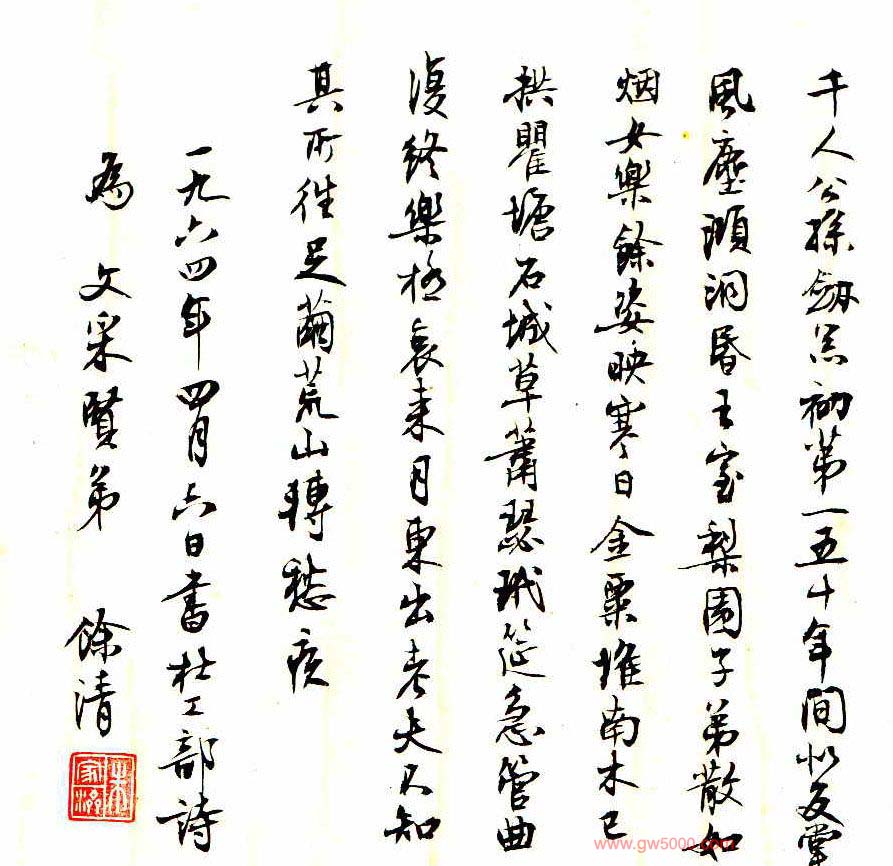 千人公孫劍器初第一五十年間似反掌
風塵澒洞昏王室梨園子弟散如
烟女樂餘姿映寒日金粟堆南木已
拱瞿塘石城草蕭瑟玳筵急管曲
復終樂極哀來月東出老夫不知
其所往足繭荒山轉愁疾
一九六四年四月六日書杜工部詩
為 文采賢弟 餘清
www.gw5000.com